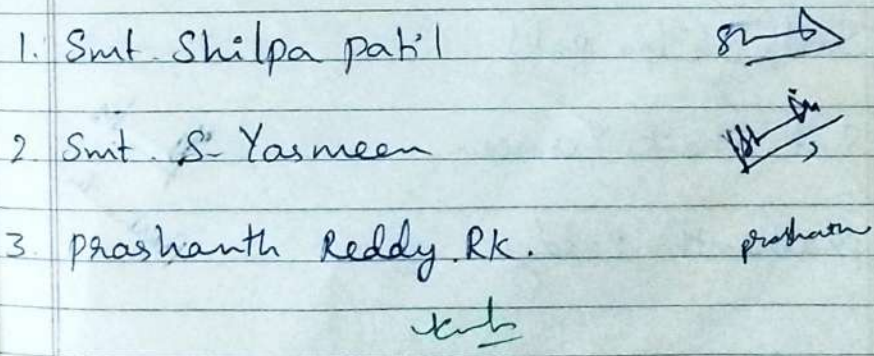 1. Smt. Shilpa patil
2. Smt. S- Yasmeen
3. prashanth Reddy.RK. prashath